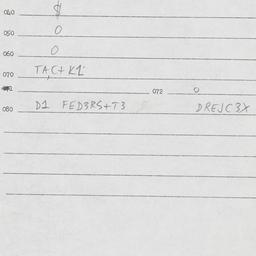 040 $
050 0
060 0
070 TA,C+K1
072 0
080 D1 FED3RS+T3 DREJC3X